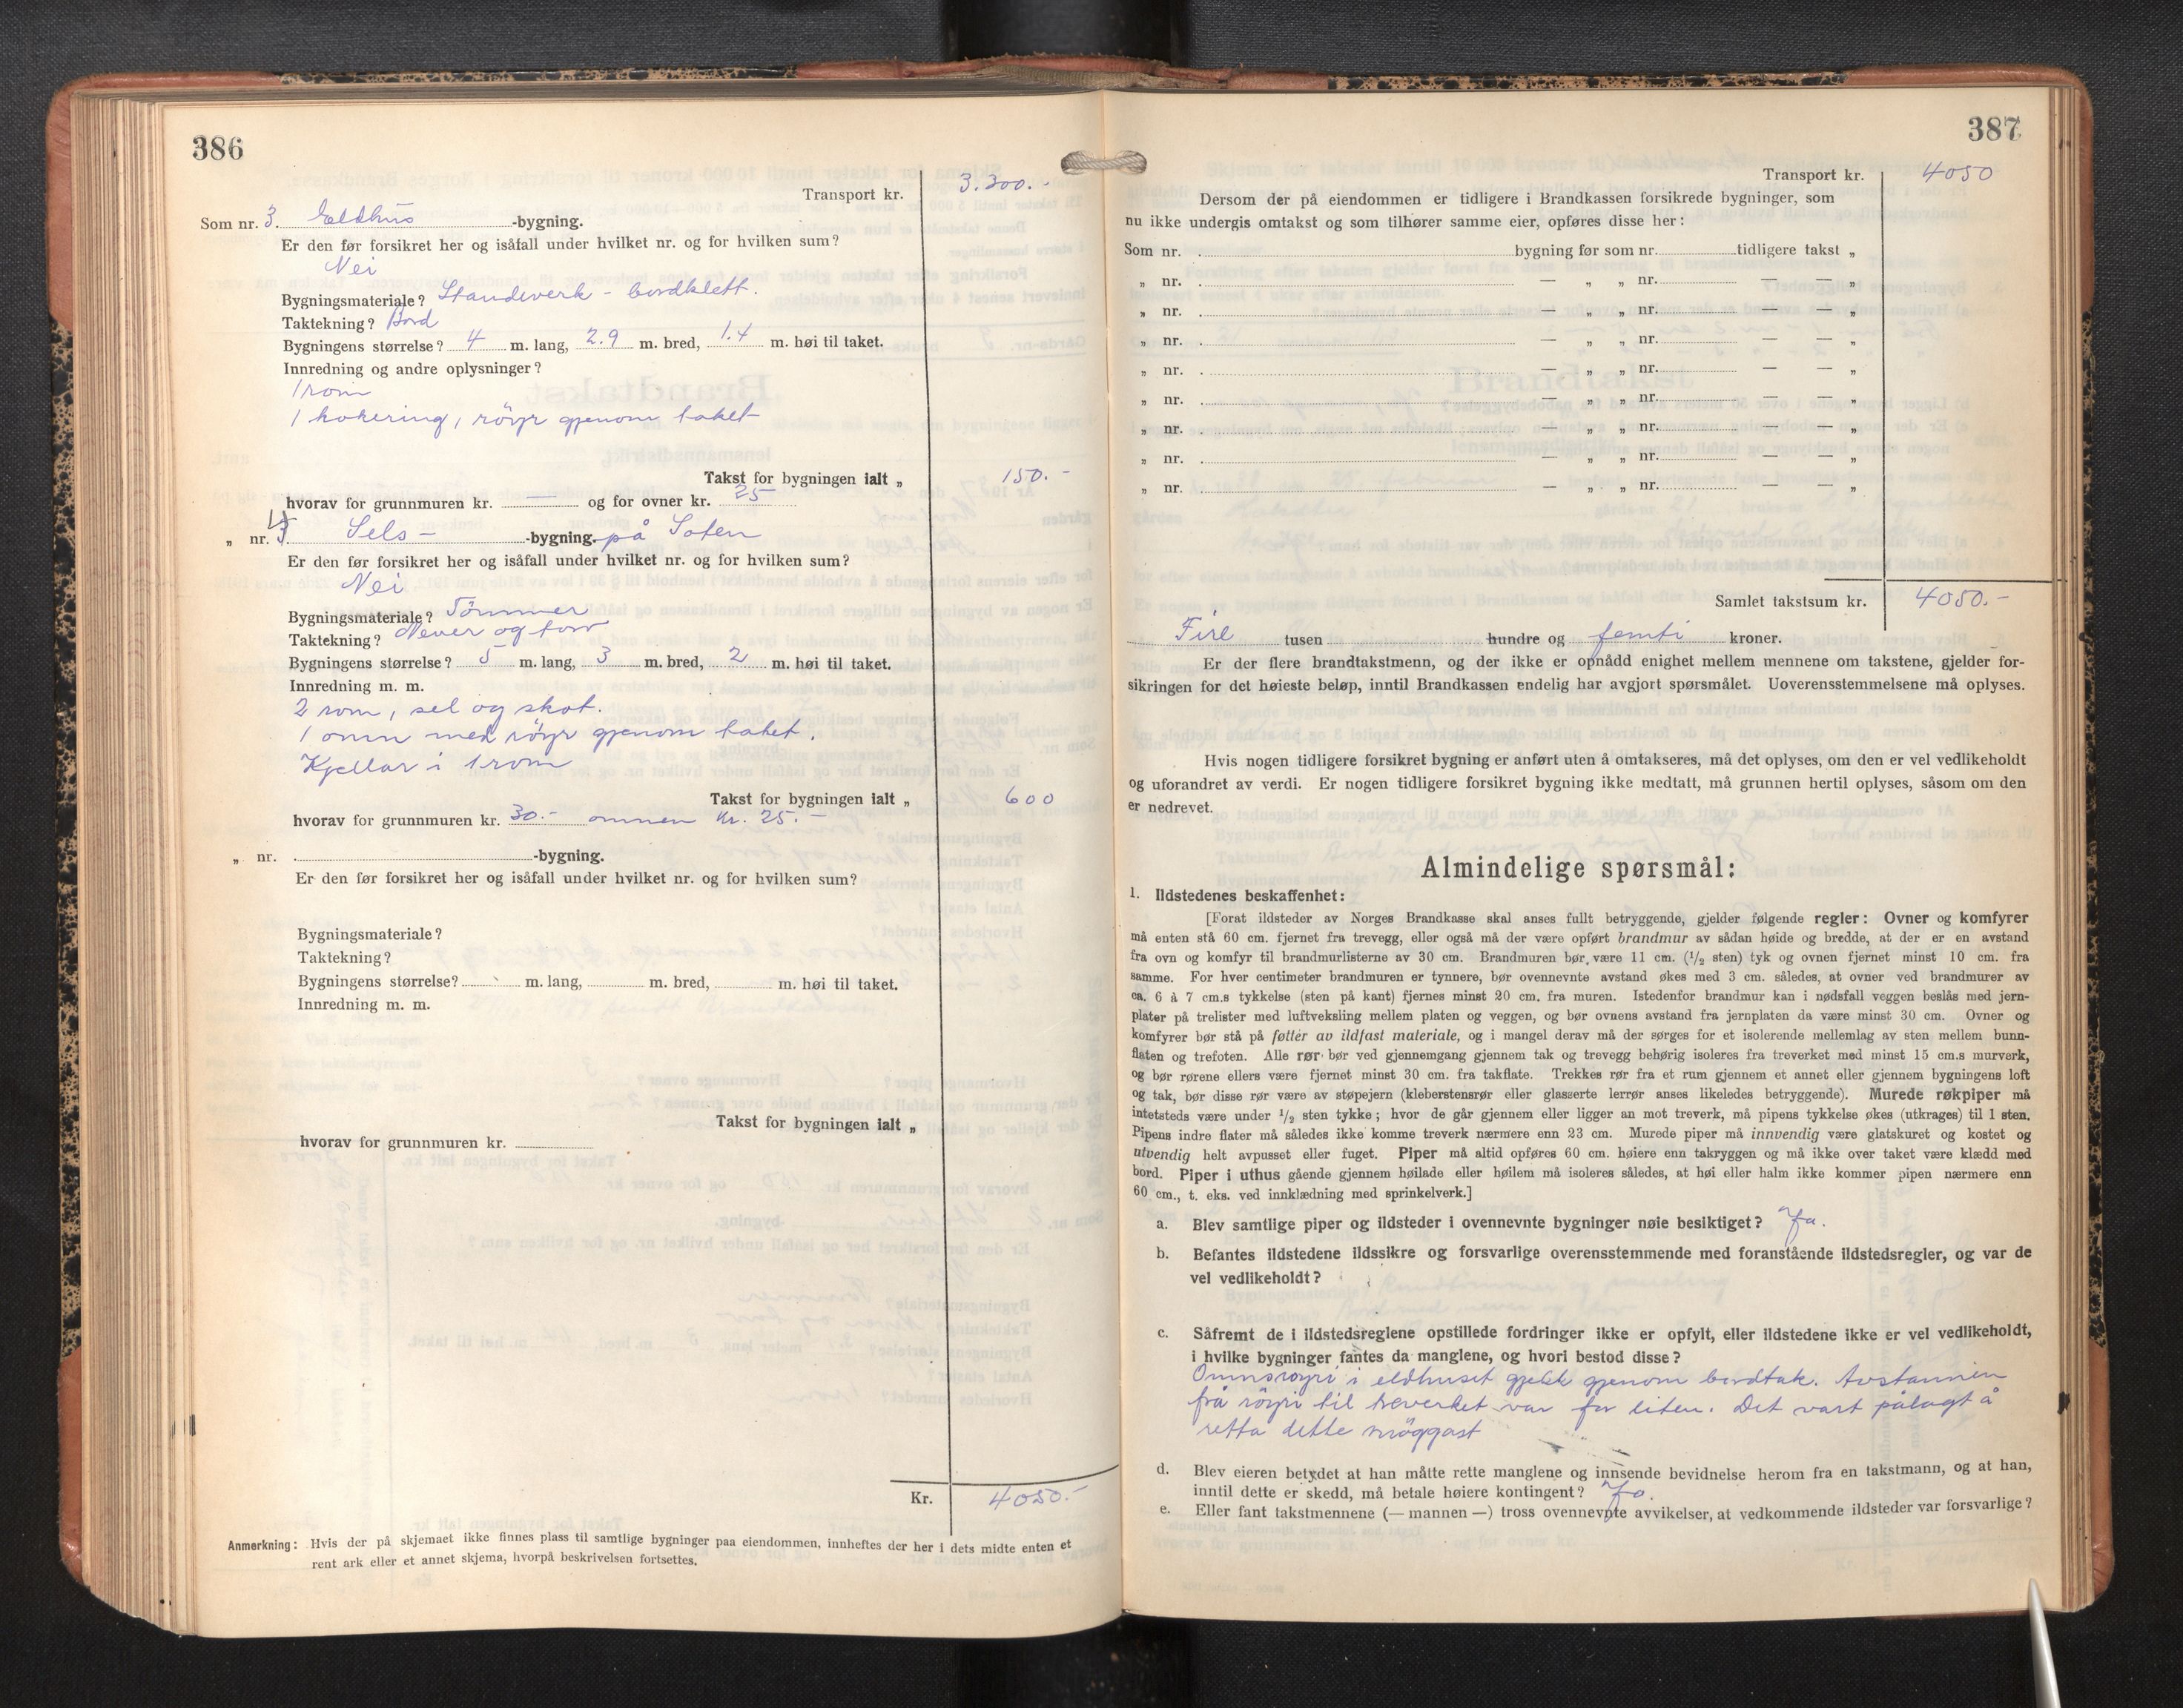 386
Transport kr. 3.300.-
Som nr. 3. Eldhus -bygning.
Er den før forsikret her og isåfall under hvilket nr. og for hvilken sum?
Nei
Bygningsmateriale? Standverk - bordklett.
Taktekning? Bord
Bygningens størrelse? 4 m. lang, 2.9 m. bred, 1.4 m. høi til taket.
Innredning og andre oplysninger?
1 rom
1 kokering, röyr gjenom taket
Takst for bygningen ialt „ 150.-
hvorav for grunnmuren kr. — og for ovner kr. 25
„ nr. 4 Sels- -bygning. på Soten
Er den før forsikret her og isåfall under hvilket nr. og for hvilken sum?
Nei
Bygningsmateriale? Tömmer
Taktekning? Never og torv
Bygningens størrelse? 5 m. lang, 3 m. bred, 2 m. høi til taket.
Innredning m. m.
2 rom, sel og skot.
1 omn med röyr gjenom taket.
Kjellar i 1 rom
Takst for bygningen ialt „ 600
hvorav for grunnmuren kr. 30.- omnen kr. 25.-
„ nr. -bygning.
Er den før forsikret her og isåfall under hvilket nr. og for hvilken sum?
Bygningsmateriale?
Taktekning?
Bygningens størrelse? m. lang, m. bred, m. høi til taket.
Innredning m. m.
Takst for bygningen ialt „
hvorav for grunnmuren kr.
Kr. 4050.-
Anmerkning: Hvis der på skjemaet ikke finnes plass til samtlige bygninger paa eiendommen, innheftes der her i dets midte enten et
rent ark eller et annet skjema, hvorpå beskrivelsen fortsettes.
387
Transport kr. 4050
Dersom der på eiendommen er tidligere i Brandkassen forsikrede bygninger, som
nu ikke undergis omtakst og som tilhører samme eier, opføres disse her:
Som nr. bygning før som nr. tidligere takst „
„ nr. — „ „ nr. — — „
„ nr. — „ „ nr. — — „
„ nr. — „ „ nr. — — „
„ nr. — „ „ nr. — — „
„ nr. — „ „ nr. — — „
„ nr. — „ „ nr. — — „
„ nr. — „ „ nr. — — „
„ nr. — „ „ nr. — — „
Samlet takstsum kr. 4050.-
Fire tusen hundre og femti kroner.
Er der flere brandtakstmenn, og der ikke er opnådd enighet mellem mennene om takstene, gjelder for-
sikringen for det høieste beløp, inntil Brandkassen endelig har avgjort spørsmålet. Uoverensstemmelsene må oplyses.
Hvis nogen tidligere forsikret bygning er anført uten å omtakseres, må det oplyses, om den er vel vedlikeholdt
og uforandret av verdi. Er nogen tidligere forsikret bygning ikke medtatt, må grunnen hertil oplyses, såsom om den
er nedrevet.
Almindelige spørsmål:
1. Ildstedenes beskaffenhet:
[Forat ildsteder av Norges Brandkasse skal anses fullt betryggende, gjelder følgende regler: Ovner og komfyrer
må enten stå 60 cm. fjernet fra trevegg, eller også må der være opført brandmur av sådan høide og bredde, at der er en avstand
fra ovn og komfyr til brandmurlisterne av 30 cm. Brandmuren bør være 11 cm. (1/2 sten) tyk og ovnen fjernet minst 10 cm. fra
samme. For hver centimeter brandmuren er tynnere, bør ovennevnte avstand økes med 3 cm. således, at ovner ved brandmurer av
ca. 6 à 7 cm.s tykkelse (sten på kant) fjernes minst 20 cm. fra muren. Istedenfor brandmur kan i nødsfall veggen beslås med jern-
plater på trelister med luftveksling mellem platen og veggen, og bør ovnens avstand fra jernplaten da være minst 30 cm. Ovner og
komfyrer bør stå på føtter av ildfast materiale, og i mangel derav må der sørges for et isolerende mellemlag av sten mellem bunn-
flaten og trefoten. Alle rør bør ved gjennemgang gjennem tak og trevegg behørig isoleres fra treverket med minst 15 cm.s murverk,
og bør rørene ellers være fjernet minst 30 cm. fra takflate. Trekkes rør fra et rum gjennem et annet eller gjennem bygningens loft
og tak, bør disse rør være av støpejern (kleberstensrör eller glasserte lerrør anses likeledes betryggende). Murede røkpiper må
intetsteds være under 1/2 sten tykke; hvor de går gjennem eller ligger an mot treverk, må pipens tykkelse økes (utkrages) til 1 sten.
Pipens indre flater må således ikke komme treverk nærmere enn 23 cm. Murede piper må innvendig være glatskuret og kostet og
utvendig helt avpusset eller fuget. Piper må altid opføres 60 cm. høiere enn takryggen og må ikke over taket være klædd med
bord. Piper i uthus gående gjennem høilade eller høilem må isoleres således, at høi eller halm ikke kommer pipen nærmere enn
60 cm., t. eks. ved innklædning med sprinkelverk.]
a. Blev samtlige piper og ildsteder i ovennevnte bygninger nøie besiktiget? Ja.
b. Befantes ildstedene ildssikre og forsvarlige overensstemmende med foranstående ildstedsregler, og var de
vel vedlikeholdt?
c. Såfremt de i ildstedsreglene opstillede fordringer ikke er opfylt, eller ildstedene ikke er vel vedlikeholdt,
i hvilke bygninger fantes da manglene, og hvori bestod disse?
Omnsröyri i eldhuset gjekk gjenom bordtak. Avstannen
frå röyri til treverket var for liten. Det vart pålagt å
retta dette snöggast
d. Blev eieren betydet at han måtte rette manglene og innsende bevidnelse herom fra en takstmann, og at han,
inntil dette er skedd, må betale høiere kontingent? Ja.
e. Eller fant takstmennene (— mannen —) tross ovennevnte avvikelser, at vedkommende ildsteder var forsvarlige?